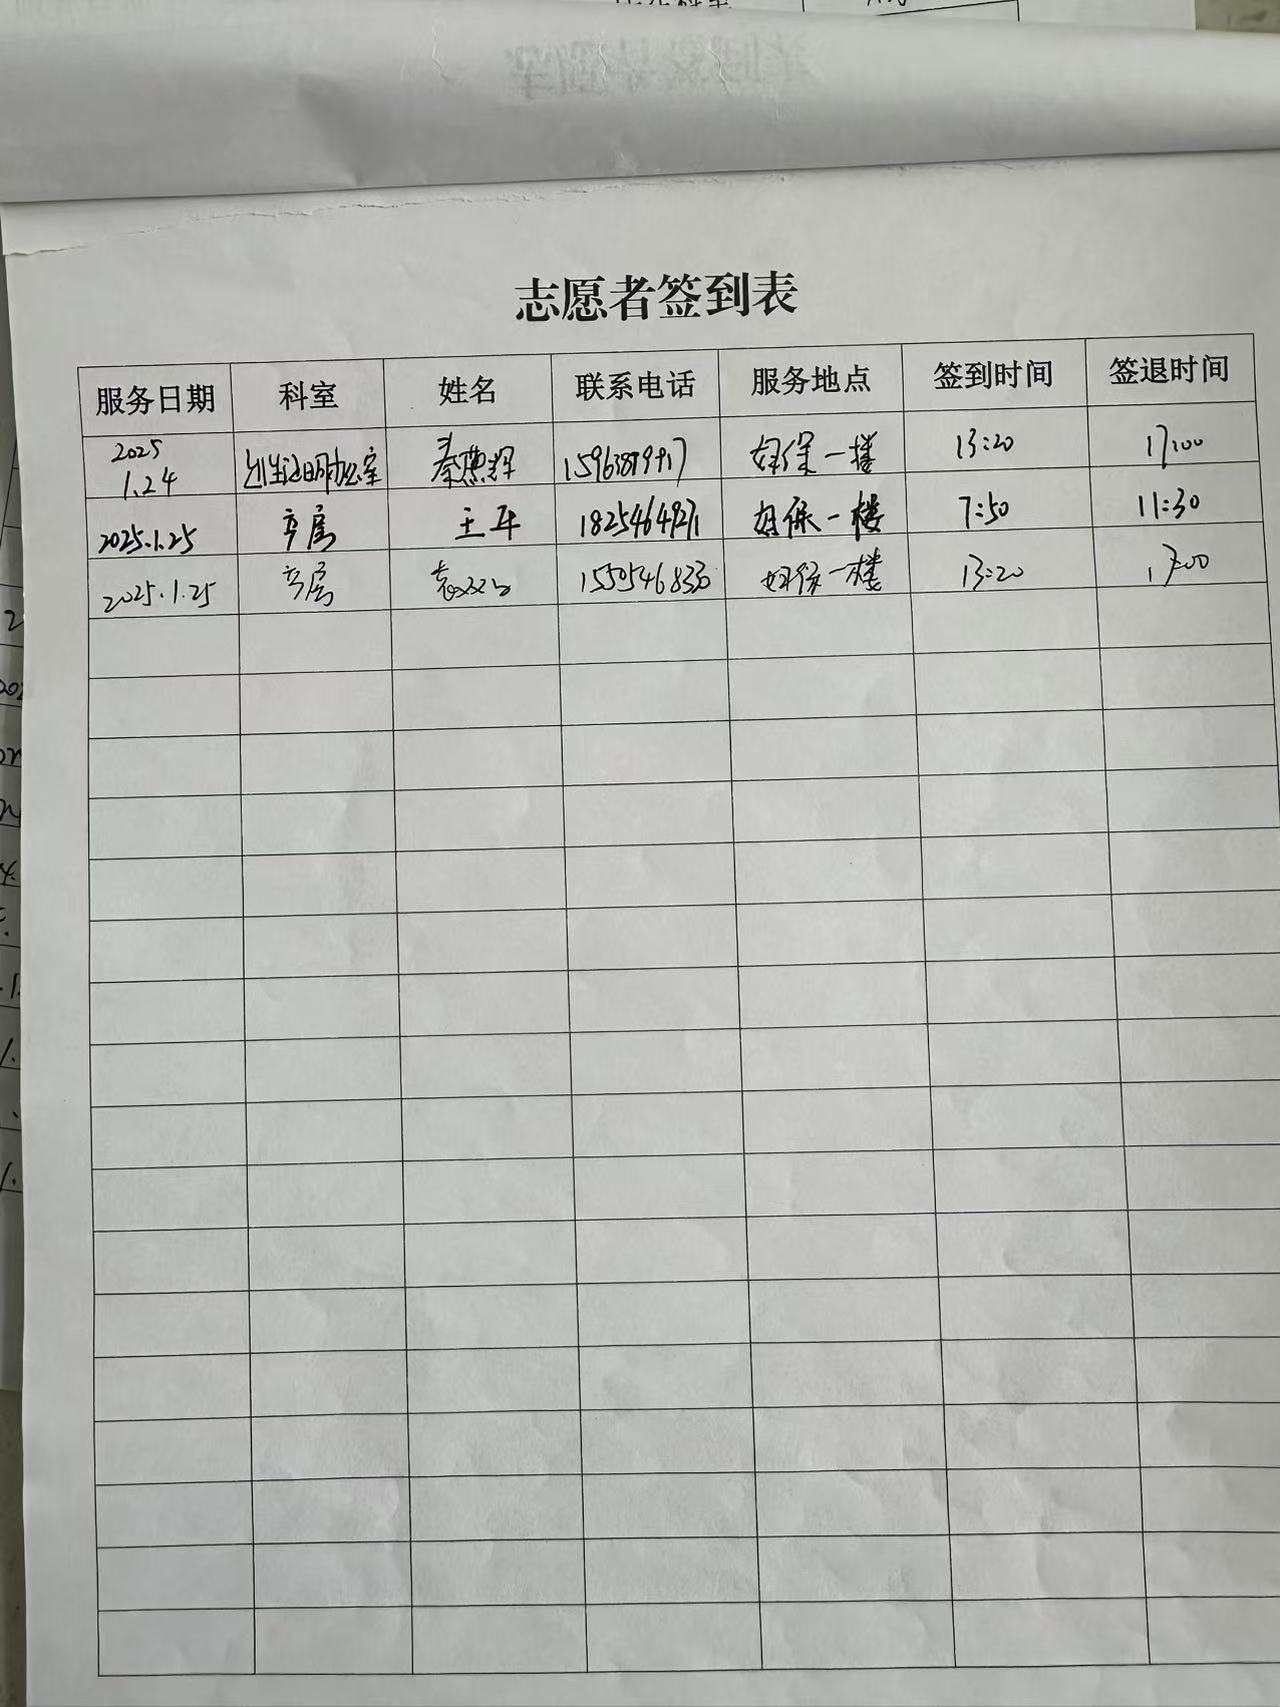 志愿者签到表
服务日期 科室 姓名 联系电话 服务地点 签到时间 签退时间
2025
1.24 出生证明办公室 秦燕辉 妇保一楼 13:20 17:00
2025.1.25 产房 王平 18254649271 妇保一楼 7:50 11:30
2025.1.25 产房 袁 妇保一楼 13:20 17:00